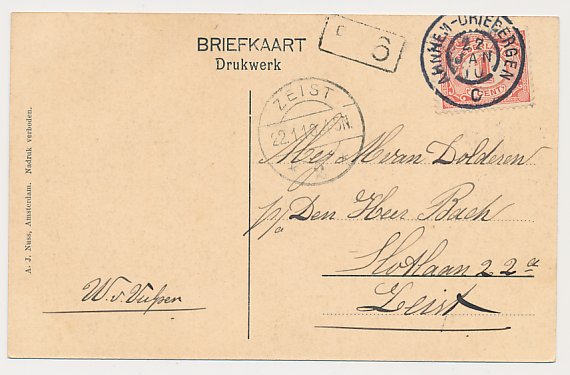 BRIEFKAART
Drukwerk
6
ARNHEM-DRIEBERGEN
22
JAN
10
C
CENT
ZEIST
22.1.10
A. J. Nuss, Amsterdam. Nadruk verboden.
Mej M van Dolderen
p/a Den Heer Bach
Slotlaan 22a
Zeist
W. v. Vulpen